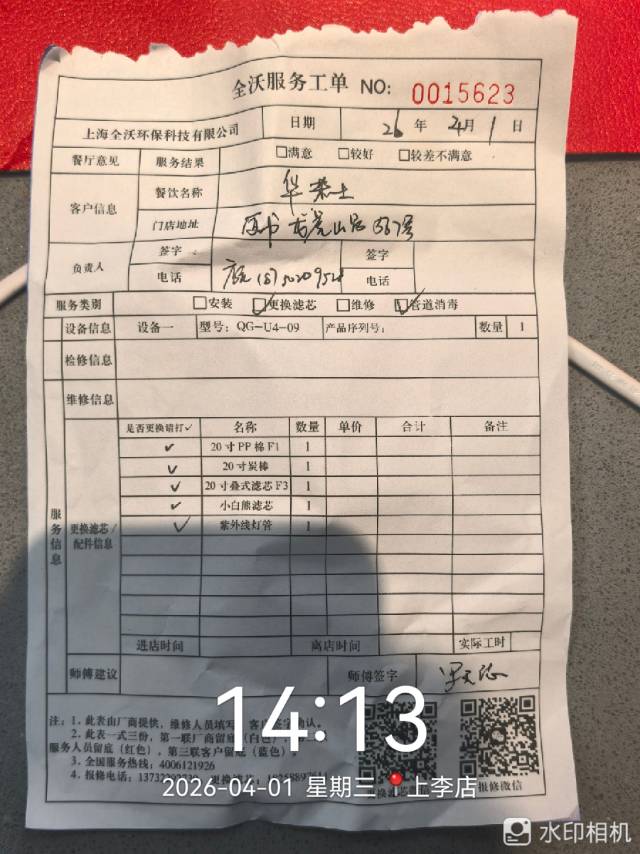 全沃服务工单 NO: 0015623
上海全沃环保科技有限公司 日期 26 年 4月 1 日
餐厅意见 服务结果 □满意 □较好 □较差不满意
客户信息 餐饮名称 华莱士
门店地址 山路 567号
负责人 签字 签字
电话 电话
服务类别 □安装 ☑更换滤芯 □维修 ☑管道消毒
设备信息 设备一 型号: QG-U4-09 产品序列号: 数量 1
检修信息
维修信息
服务信息 更换滤芯/配件信息
是否更换请打✓ 名称 数量 单价 合计 备注
✓ 20寸PP棉F1 1
✓ 20寸炭棒 1
✓ 20寸叠式滤芯F3 1
✓ 小白熊滤芯 1
✓ 紫外线灯管 1
进店时间 离店时间 实际工时
师傅建议 师傅签字
注: 1、此表由厂商提供, 维修人员填写, 客户签字确认。
2、此表一式三份, 第一联厂商留底(白色)、第二联
服务人员留底(红色)、第三联客户留底(蓝色)
3、全国服务热线: 4006121926
4、报修电话: 更换滤芯:
更换滤芯 报修微信
14:13
2026-04-01 星期三 上李店
水印相机